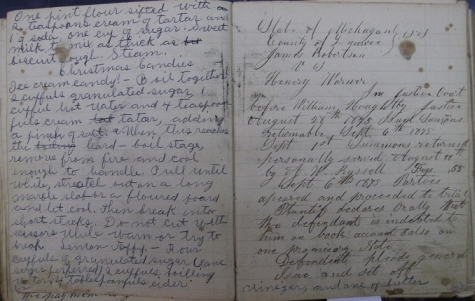 One pint flour sifted with
2 teaspoons cream of tartar and
1 soda, one cup of sugar. Sweet
milk to mix as thick as
biscuit dough. Steam.
Christmas Candies
Ice cream candy! – Boil together
cupfuls granulated sugar, 1
cupful hot water and 4 teaspoon
fuls cream tatar, adding
a pinch of salt. When this reaches
the hard-boil stage,
remove from fire and cool
enough to handle. Pull until
white, stretch out on a long
marble slab or a floured board
and let cool. Then break into
short sticks. Do not cut with
scissors while warm or try to
break. Lemon Toffy – Four
cupfuls of granulated sugar
sugar preferred) 2 cupfuls boiling
water, 4 tablespoonfuls cider
State of Michigan
County of
James Robertson
VS
Henery Warner
In Justice Court
before William Justice
August 28th 1875 Issued Summons
Returnable Sept. 6th 1875
Sept 1st Summons returned
personally served August
by
Sept 6th 1875 Parties
apeared and proceeded to trial
Plantiff declared Orally that
the defendant is indebted to
him on book account also on
one promisory Note
Defendant pleads general
Isue and set off
vinegar, and one of butter